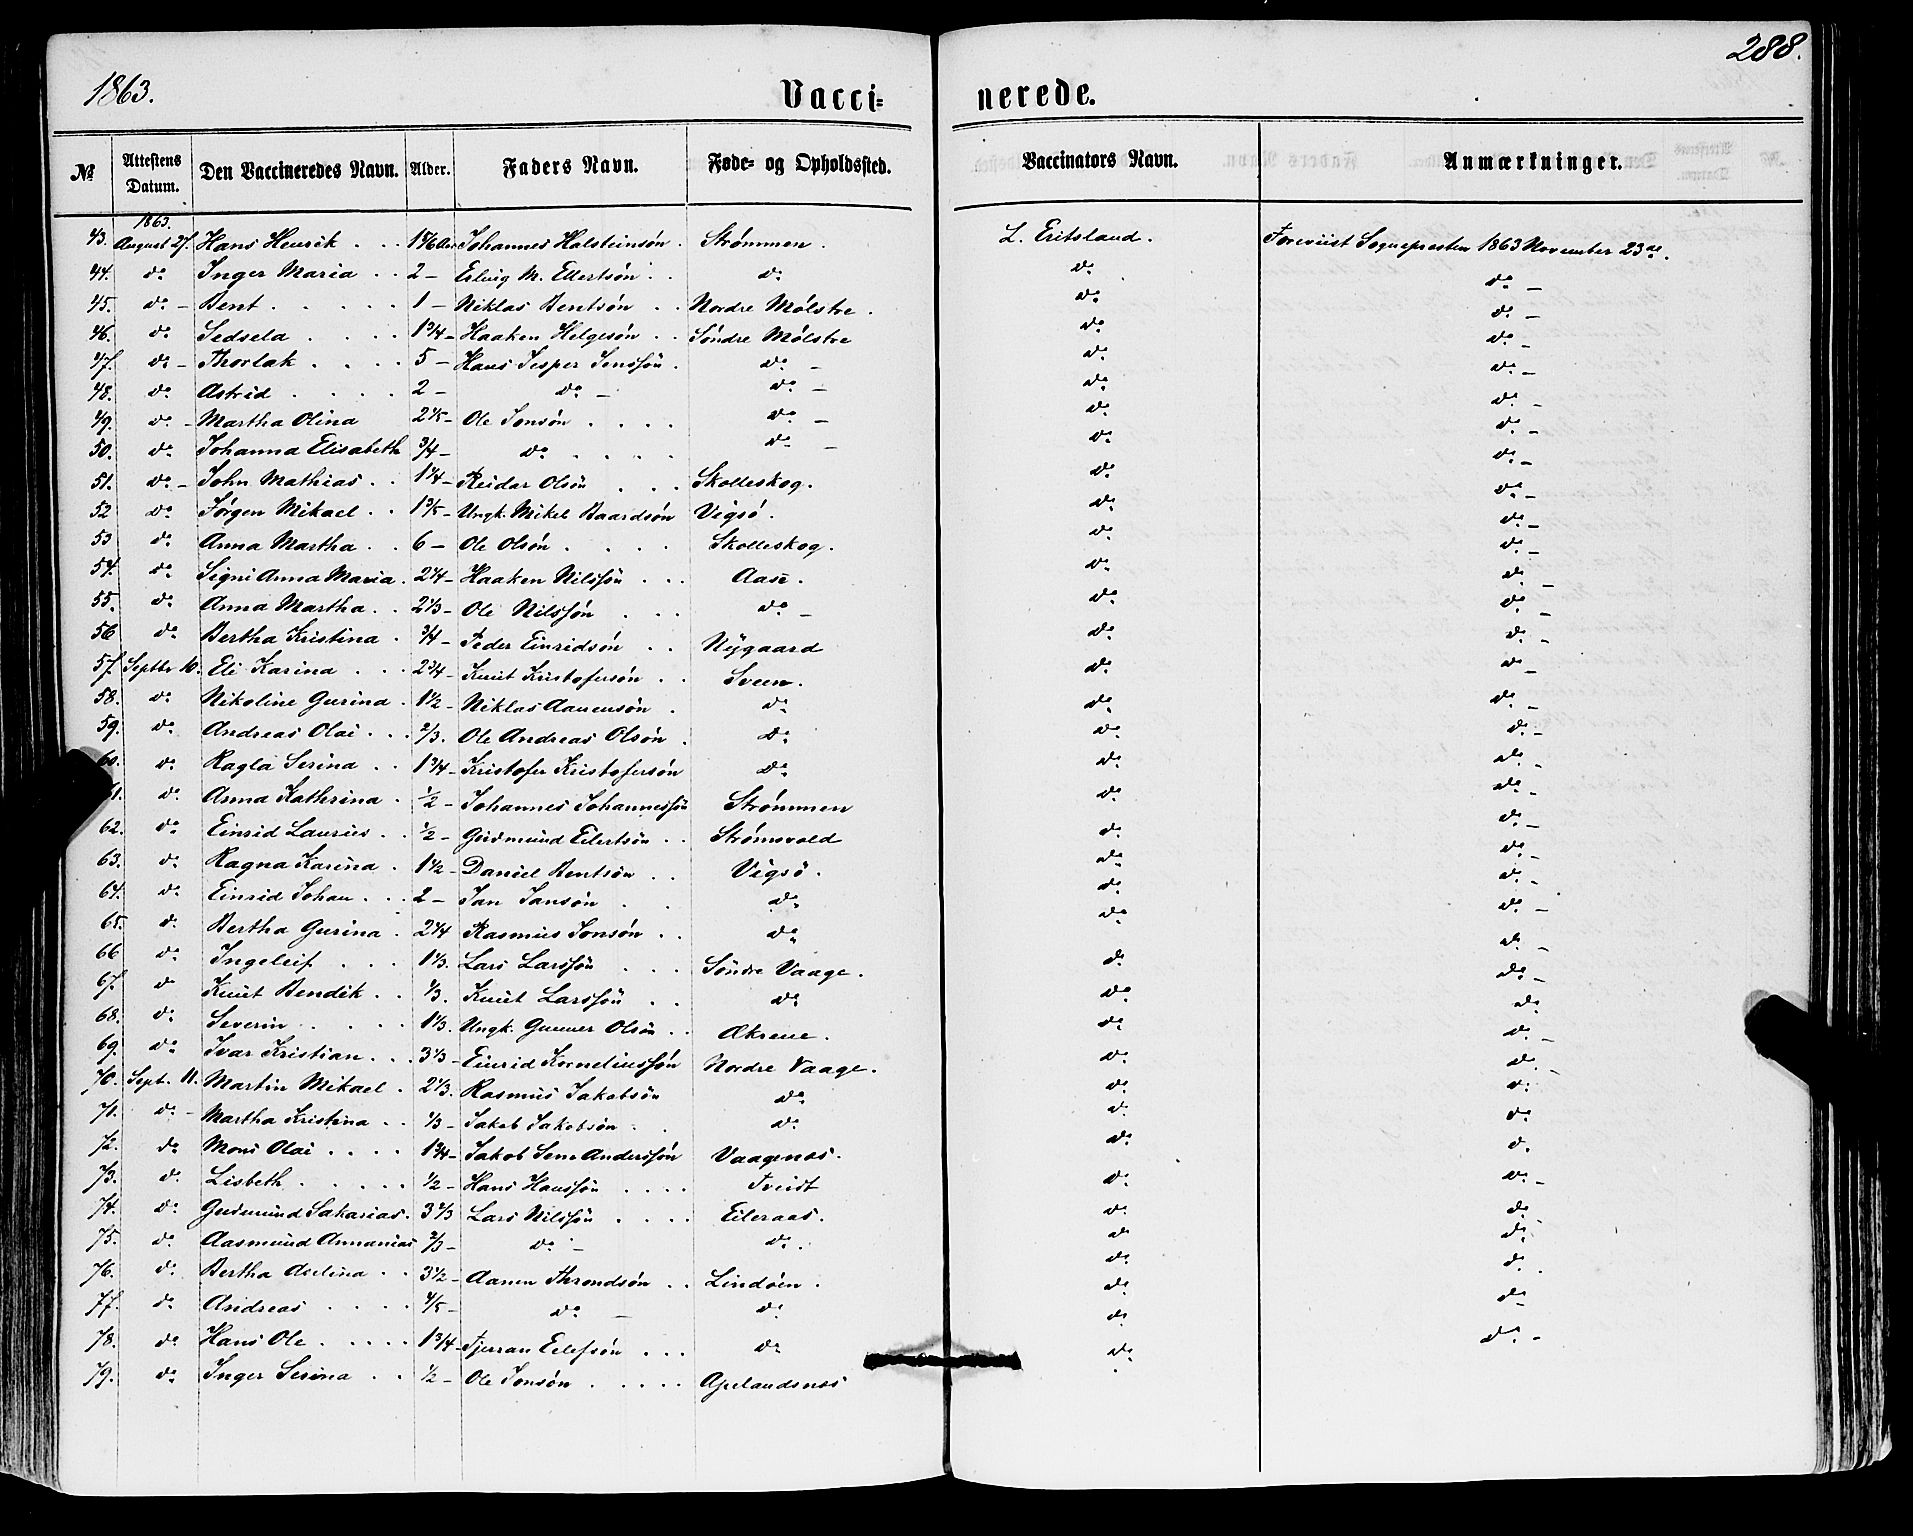 288.
1863.
Vacci= nerede.
No. Attestens Datum. Den Vaccineredes Navn. Alder. Faders Navn. Føde- og Opholdssted. Vaccinators Navn. Anmærkninger.
1863.
43. August 27. Hans Henrik Johannes Halsteinsøn. Strømmen. L. Eritsland. Foreviist Sognepresten 1863 November 23de.
44. do Inger Maria 2 - Erling M. Ellertsøn do do do -
45. do - Bent 1 - Niklas Bentsøn Nordre Mølstre. do do -
46. do Sedsela 1 3/4 - Haaken Helgesøn Søndre Mølstre do do -
47. do - Thorlak 5 - Hans Jesper Jenssøn. do - do do -
48. do Astrid 2 - do - do - do do -
49. do - Martha Olina Ole Jonsøn do - do do -
50. do Johanna Elisabeth 3/4 - do do - do do -
51. do - John Mathias 1 1/4 - Reidar Olsøn Skolleskog. do do -
52 do Jørgen Mikael Ungk. Mikel Baardsøn Vigsø. do do -
53 do Anna Martha 6 - Ole Olsøn Skolleskog. do do -
54. do Signi Anna Maria. 2 1/4 - Haaken Nilssøn Aase. do do -
55. do Anna Martha 2 1/3 - Ole Nilssøn do - do do -
56 do Bertha Kristina 3/4 - Peder Einridsøn Nygaard do do -
57. Septbr 10. Eli Karina 2 3/4 - Knut Kristofersøn Sveen. do do -
58. do Nikoline Gurina 1 1/2 - Niklas Aanensøn do do do -
59. do Andreas Olai 2/3. Ole Andreas Olsøn do do do -
60. do Ragla Serina 1 3/4 - Kristofer Kristofersøn do do do -
61. do Anna Kathrina 1/2 - Johannes Johannessøn Strømmen do do -
62. do Einrid Laurits 1/2 - Gudmund Eilertsøn Strømsvold do do -
63. do Ragna Karina 1 1/2 - Daniel Bentsøn Vigsø. do do -
64. do Einrid Johan 2 - Jan Jansøn do do do -
65. do Bertha Gurina 2 1/4 Rasmus Jonsøn do do do -
66 do Ingeleif 1 1/3. Lars Larssøn Søndre Vaage. do do -
67. do Knut Bendik 1/3. Knut Larssøn do do do -
68. do Severin 1 1/3. Ungk. Gunner Olsøn Ækrene. do do
69. do Ivar Kristian 3 1/3 - Einrid Korneliussøn Nordre Vaage. do do -
70. Sept. 11. Martin Mikael 2 1/3. Rasmus Jakobsøn do do do -
71. do - Martha Kristina 1/3 - Jakob Jakobsøn do do do
72. do Mons Olai 1 3/4 - Jakob Sene Anderssøn Vaagenæs. do do
73. do Lisbeth 1/2 - Hans Hanssøn Tveidt do do -
74. do Gudmund Sakarias. 3 2/3 Lars Nilssøn Eileraas. do do
75. do Aasmund Annanias 2/3 - do - do. do do
76. do Bertha Aselina 3 1/2 - Aanen Throndsøn Lindøen. do do
77. do Andreas 4/5 - do - do do do
78. do Hans Ole 1 3/4 - Tjerran Eilefsøn do do do -
79. do Inger Serina 1/2 - Ole Jonsøn Apelandsnæs do